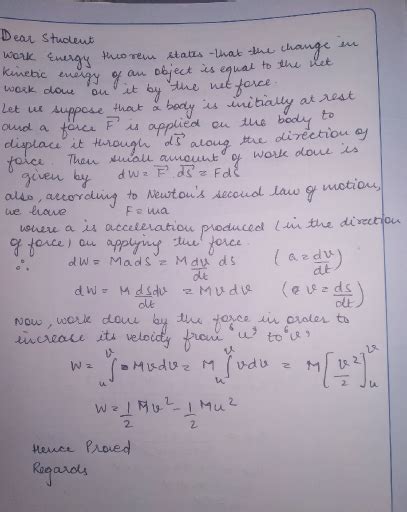 Dear Student
Work Energy theorem states that the change in
kinetic energy of an object is equal to the net
work done on it by the net force.
Let us suppose that a body is initially at rest
and a force F⃗ is applied on the body to
displace it through ds⃗ along the direction of
force. Then small amount of work done is
given by dW = F⃗.ds⃗ = Fds
also, according to Newton's second law of motion,
we have F = ma
where a is acceleration produced (in the direction
of force) on applying the force.
∴ dW = Mads = M dv/dt ds (a = dv/dt)
dW = M ds/dt dv = Mvdv (v = ds/dt)
Now, work done by the force in order to
increase its velocity from "u" to "v"
W = ∫ᵤᵛ Mvdv = M ∫ᵤᵛ vdv = M [v²/2]ᵤᵛ
W = 1/2 Mv² - 1/2 Mu²
Hence Proved
Regards